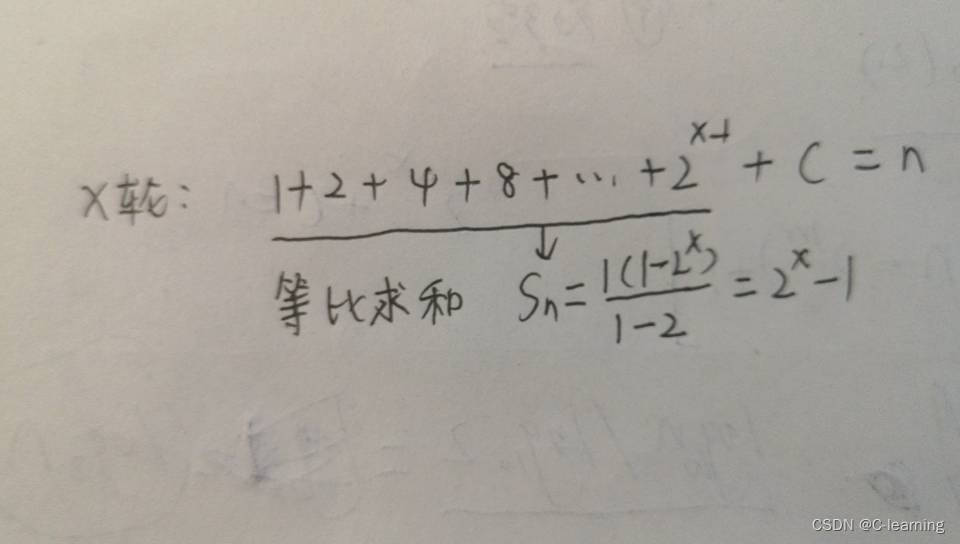 X轮: 1+2+4+8+…+2^{x-1}+C=n
等比求和 Sn=\frac{1(1-2^x)}{1-2}=2^x-1
CSDN @C-learning